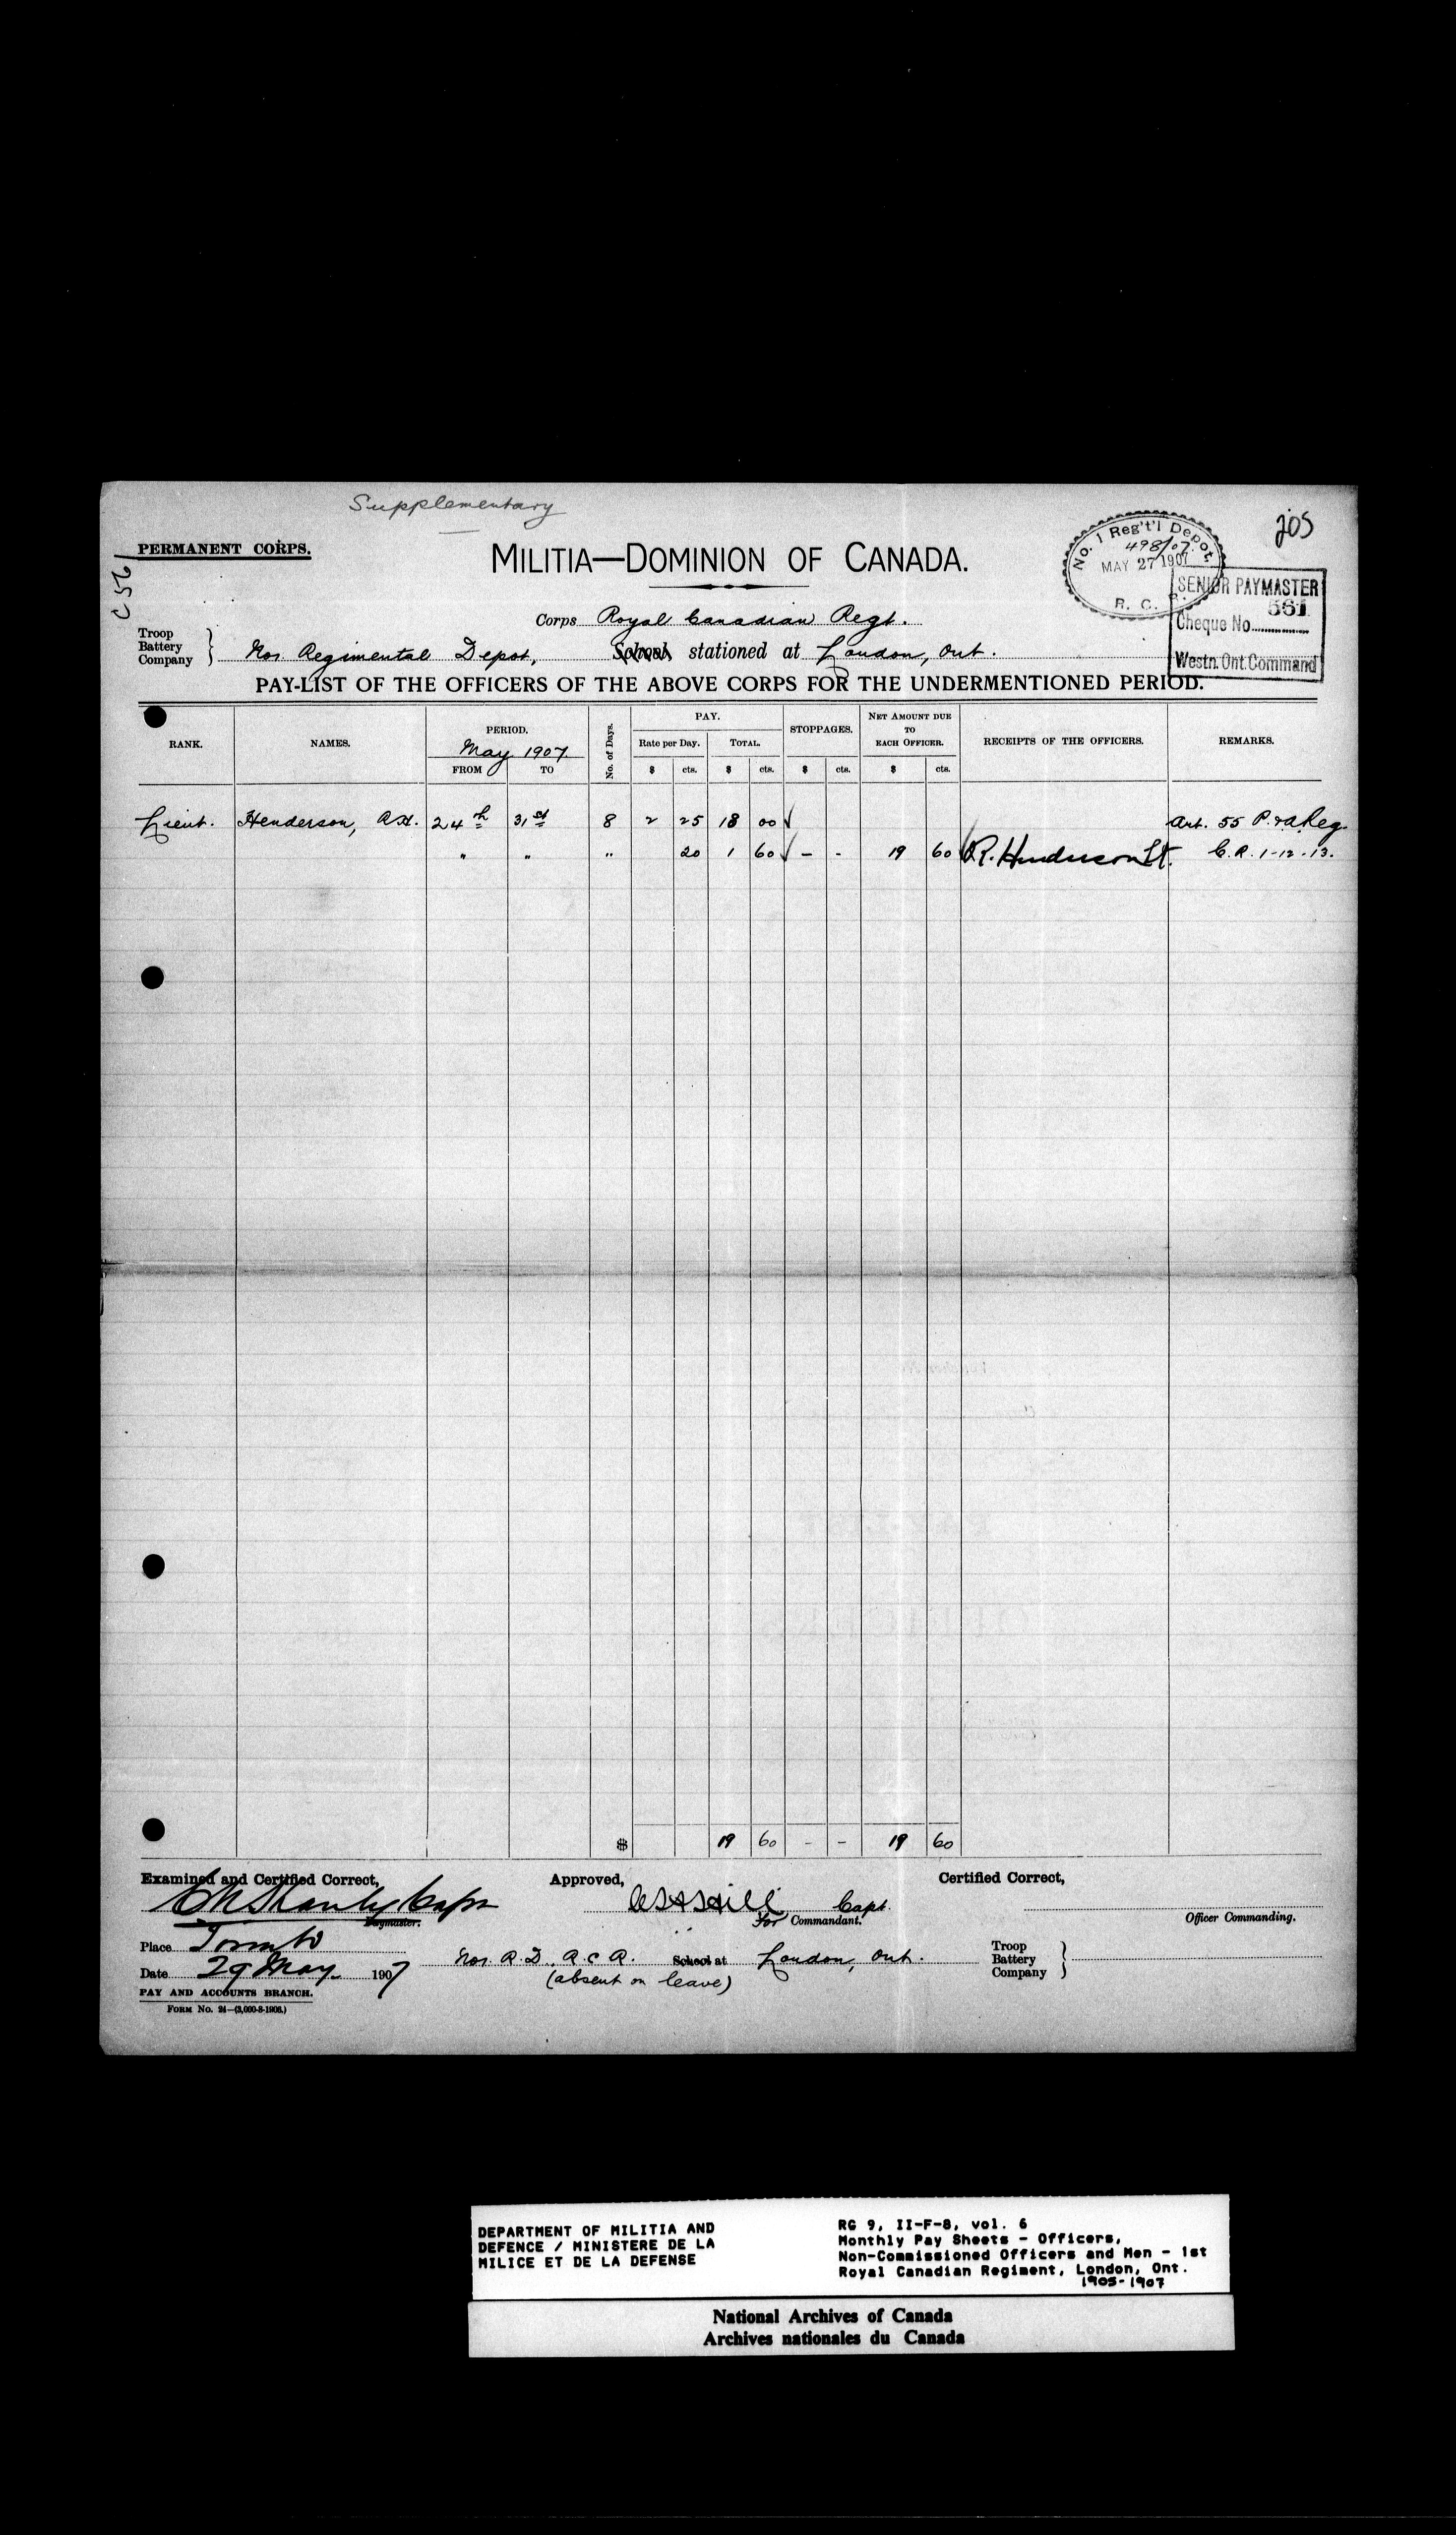 Supplementary
205
PERMANENT CORPS.
MILITIA—DOMINION OF CANADA.
No. 1 Reg't'l Depot.
498/07.
MAY 27 1907
R. C. R.
SENIOR PAYMASTER
561
Cheque No.
Westn. Ont. Command
C 561
Corps Royal Canadian Regt.
Troop
Battery
Company
Regimental Depot, School stationed at London, Ont.
PAY-LIST OF THE OFFICERS OF THE ABOVE CORPS FOR THE UNDERMENTIONED PERIOD.
RANK. NAMES. PERIOD. No. of Days. PAY. STOPPAGES. NET AMOUNT DUE TO EACH OFFICER. RECEIPTS OF THE OFFICERS. REMARKS.
May 1907. Rate per Day. TOTAL.
FROM TO $ cts. $ cts. $ cts. $ cts.
Lieut. Henderson, 24th 31st 8 2 25 18 00 Art. 55 P. & A. Reg.
" " " 20 1 60 - - 19 60 R. Henderson Lt. 1-12-13.
$ 19 60 - - 19 60
Examined and Certified Correct, Approved, Certified Correct,
Capt Capt.
Paymaster. For Commandant. Officer Commanding.
Place Toronto
R. D., R. C. R. School at London, Ont.
Troop
Battery
Company
Date 29 May 1907
(absent on leave)
PAY AND ACCOUNTS BRANCH.
FORM No. 24—(3,000-8-1906.)
DEPARTMENT OF MILITIA AND
DEFENCE / MINISTERE DE LA
MILICE ET DE LA DEFENSE
RG 9, II-F-8, vol. 6
Monthly Pay Sheets - Officers,
Non-Commissioned Officers and Men - 1st
Royal Canadian Regiment, London, Ont.
1905-1907
National Archives of Canada
Archives nationales du Canada